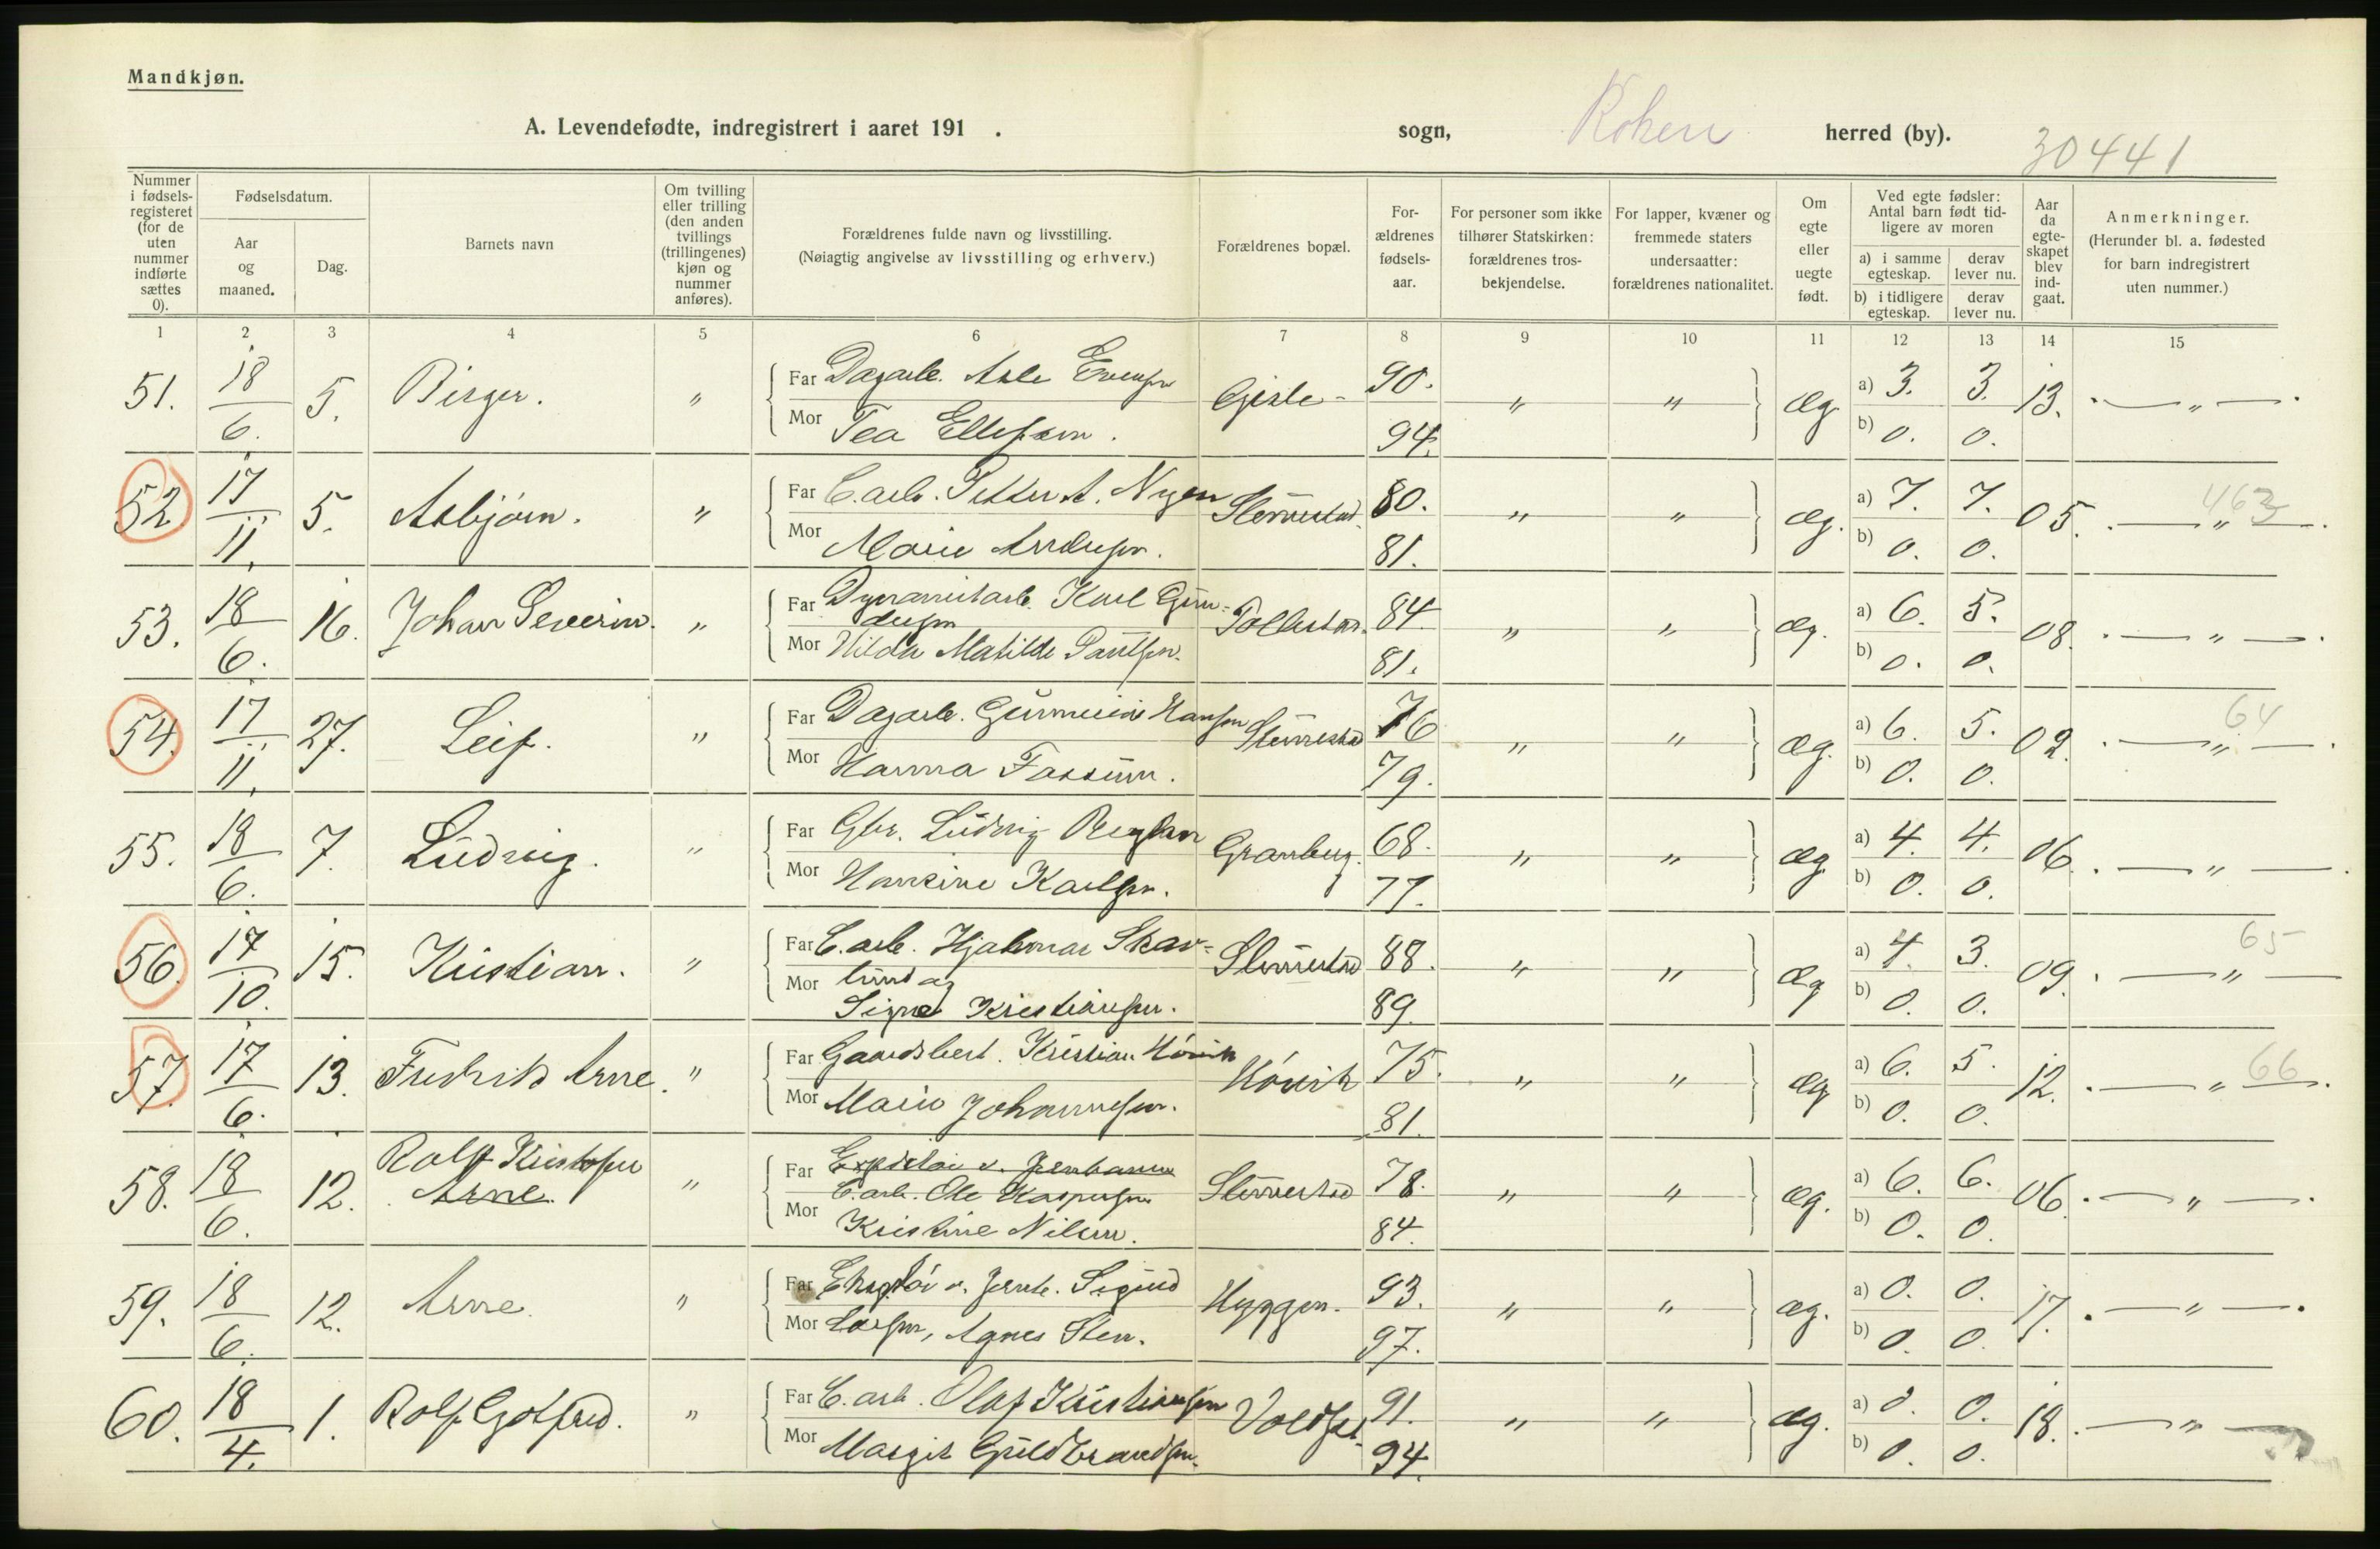 Mandkjøn.
A. Levendefødte, indregistrert i aaret 191 .
sogn, Røken herred (by). 30441
Nummer i fødselsregisteret (for de uten nummer indførte sættes 0).
Fødselsdatum.
Aar og maaned.
Dag.
Barnets navn
Om tvilling eller trilling (den anden tvillings (trillingenes) kjøn og nummer anføres).
Forældrenes fulde navn og livsstilling.
(Nøiagtig angivelse av livsstilling og erhverv.)
Forældrenes bopæl.
Forældrenes fødselsaar.
For personer som ikke tilhører Statskirken: forældrenes trosbekjendelse.
For lapper, kvæner og fremmede staters undersaatter: forældrenes nationalitet.
Om egte eller uegte født.
Ved egte fødsler: Antal barn født tidligere av moren
a) i samme egteskap. derav lever nu.
b) i tidligere egteskap. derav lever nu.
Aar da egteskapet blev indgaat.
Anmerkninger.
(Herunder bl. a. fødested for barn indregistrert uten nummer.)
1 2 3 4 5 6 7 8 9 10 11 12 13 14 15
51. 18/6. 5. Birger. " Far Dagarb. Asle Evensen Gisle- 90. " " æg a) 3. 3. 13. — " —
Mor Tea Ellefsen. 94. b) 0. 0.
52 17/11. 5. Asbjørn. " Far C. arb. Petter A. Nygen Slemmestad. 80. " " æg. a) 7. 7. 05. — " — 463
Mor Marie Andersen. 81. b) 0. 0.
53. 18/6. 16. Johan Severin. " Far Dynamitarb. Karl Gundersen Tollestar. 84 " " æg. a) 6. 5. 08. — " —
Mor Hilda Matilde Paulsen. 81. b) 0. 0.
54. 17/11. 27. Leif. " Far Dagarb. Gunnerius Hansen Slemmestad 76 " " æg. a) 6. 5. 02. — " — 64
Mor Hanna Fossum. 79. b) 0. 0.
55. 18/6. 7. Ludvig. " Far Gbr. Ludvig Granberg. 68. " " æg a) 4. 4. 06. — " —
Mor Hansine Karlsen. 77. b) 0. 0.
56. 17/10. 15. Kristian. " Far C. arb. Hjalmar Skavlund og Slemmestad 88. " " æg a) 4. 3. 09. — " — 65
Mor Signe Kristiansen. 89. b) 0. 0.
57. 17/6. 13. Fredrik Arne. " Far Gaardsbest. Kristian Høvik Høvik 75. " " æg a) 6. 5. 12. — " — 66
Mor Marie Johannesen. 81. b) 0. 0.
58. 18/6. 12. Rolf Kristofer Arne " Far Expeditør v. Jernbanen
C. arb. Ole Kaspersen Slemmestad 78. " " æg. a) 6. 6. 06. — " —
Mor Kristine Nilsen. 84. b) 0. 0.
59. 18/6. 12. Arne. " Far v. Jernb. Sigurd Hyggen. 93. " " æg. a) 0. 0. 17. — " —
Mor Larsen, Agnes Sten. 97. b) 0. 0.
60. 18/4. 1. Rolf Gotfred. " Far C. arb. Olaf Kristiansen 91. " " æg. a) 0. 0. 18. — " —
Mor Margit Guldbrandsen. 94. b) 0. 0.